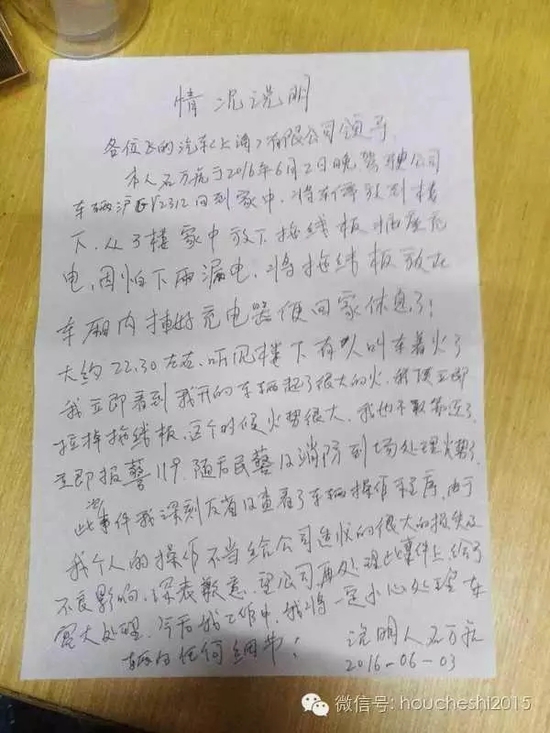 情况说明
各位飞的汽车(上海)有限公司领导
本人石万虎于2016年6月2日晚驾驶公司
车辆沪 12312回到家中,将车停到楼
下,从3楼家中放下接线板 插座充
电,因怕下雨漏电,将接线板放在
车厢内插好充电器便回家休息了!
大约22:30左右,听见楼下有人叫车着火了
我立即看到我开的车辆起了很大的火,我便立即
拉掉接线板,这个时候火势很大,我也不敢靠近了,
立即报警119,随后民警及消防到场处理火势了
此事件我深刻反省及查看了车辆操作程序,由于
我个人的操作不当给公司造成的很大的损失及
不良影响,深表歉意,望公司再处理此事件上给予
宽大处理,今后我工作中,我将一定小心处理车
辆的任何细节!
说明人 石万虎
2016-06-03
微信号: houcheshi2015